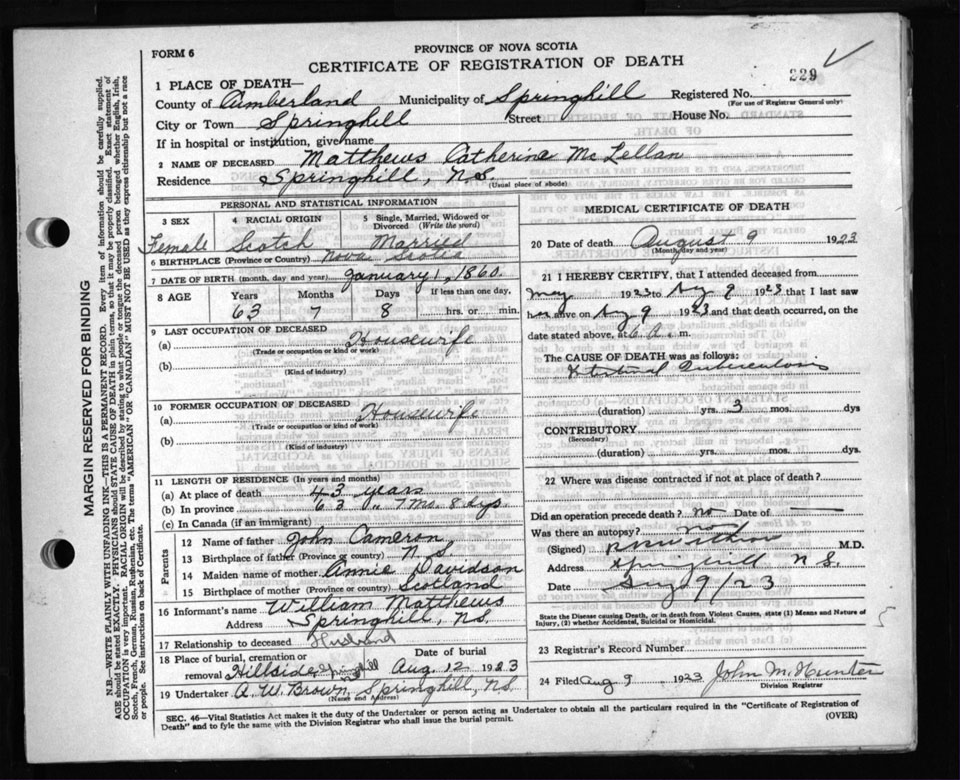 FORM 6
PROVINCE OF NOVA SCOTIA
CERTIFICATE OF REGISTRATION OF DEATH
229
1 PLACE OF DEATH—
County of Cumberland Municipality of Springhill Registered No.
(For use of Registrar General only)
City or Town Springhill Street House No.
If in hospital or institution, give name
2 NAME OF DECEASED Matthews Catherine McLellan
Residence Springhill, N.S. (Usual place of abode)
PERSONAL AND STATISTICAL INFORMATION
3 SEX 4 RACIAL ORIGIN 5 Single, Married, Widowed or Divorced (Write the word)
Female Scotch Married
6 BIRTHPLACE (Province or Country) Nova Scotia
7 DATE OF BIRTH (month, day and year) January 1, 1860.
8 AGE Years Months Days If less than one day,
63 7 8 hrs. or min.
9 LAST OCCUPATION OF DECEASED
(a) Housewife
(Trade or occupation or kind of work)
(b)
(Kind of industry)
10 FORMER OCCUPATION OF DECEASED
(a) Housewife
(Trade or occupation or kind of work)
(b)
(Kind of industry)
11 LENGTH OF RESIDENCE (In years and months)
(a) At place of death 43 years
(b) In province 63 " 7 Mo. 8 dys.
(c) In Canada (if an immigrant)
Parents
12 Name of father John Cameron
13 Birthplace of father (Province or country) N.S.
14 Maiden name of mother Annie Davidson
15 Birthplace of mother (Province or country) Scotland
16 Informant's name William Matthews
Address Springhill, N.S.
17 Relationship to deceased Husband
18 Place of burial, cremation or Date of burial
removal Hillside Springhill Aug. 12 1923
19 Undertaker A. W. Brown, Springhill, N.S.
(Name and Address)
MEDICAL CERTIFICATE OF DEATH
20 Date of death August 9 1923
(Month, day and year)
21 I HEREBY CERTIFY, that I attended deceased from
May 1923 to Aug 9 1923 that I last saw
her alive on Aug 9 1923 and that death occurred, on the
date stated above, at 6 A. m.
The CAUSE OF DEATH was as follows:
Intestinal Tuberculosis
(duration) yrs. 3 mos. dys
CONTRIBUTORY
(Secondary)
(duration) yrs. mos. dys.
22 Where was disease contracted if not at place of death?
Did an operation precede death? no Date of —
Was there an autopsy? no
(Signed) M.D.
Address Springhill N.S.
Date Aug 9/23
State the Disease causing Death, or in death from Violent Causes, state (1) Means and Nature of
Injury, (2) whether Accidental, Suicidal or Homicidal.
23 Registrar's Record Number
24 Filed Aug 9 1923 John M. Hunter
Division Registrar
SEC. 46—Vital Statistics Act makes it the duty of the Undertaker or person acting as Undertaker to obtain all the particulars required in the "Certificate of Registration of
Death" and to fyle the same with the Division Registrar who shall issue the burial permit.
(OVER)
MARGIN RESERVED FOR BINDING
N.B.—WRITE PLAINLY WITH UNFADING INK—THIS IS A PERMANENT RECORD. Every item of information should be carefully supplied.
AGE should be stated EXACTLY. PHYSICIANS should STATE CAUSE OF DEATH in plain terms, so that it may be properly classified. Exact statement of
OCCUPATION is very important. RACIAL ORIGIN will be described by stating to what people or tongue the deceased person belonged whether English, Irish,
Scotch, French, German, Russian, Ruthenian, etc. The terms "AMERICAN" OR "CANADIAN" MUST NOT BE USED as they express citizenship but not a race
or people. See instructions on back of Certificate.